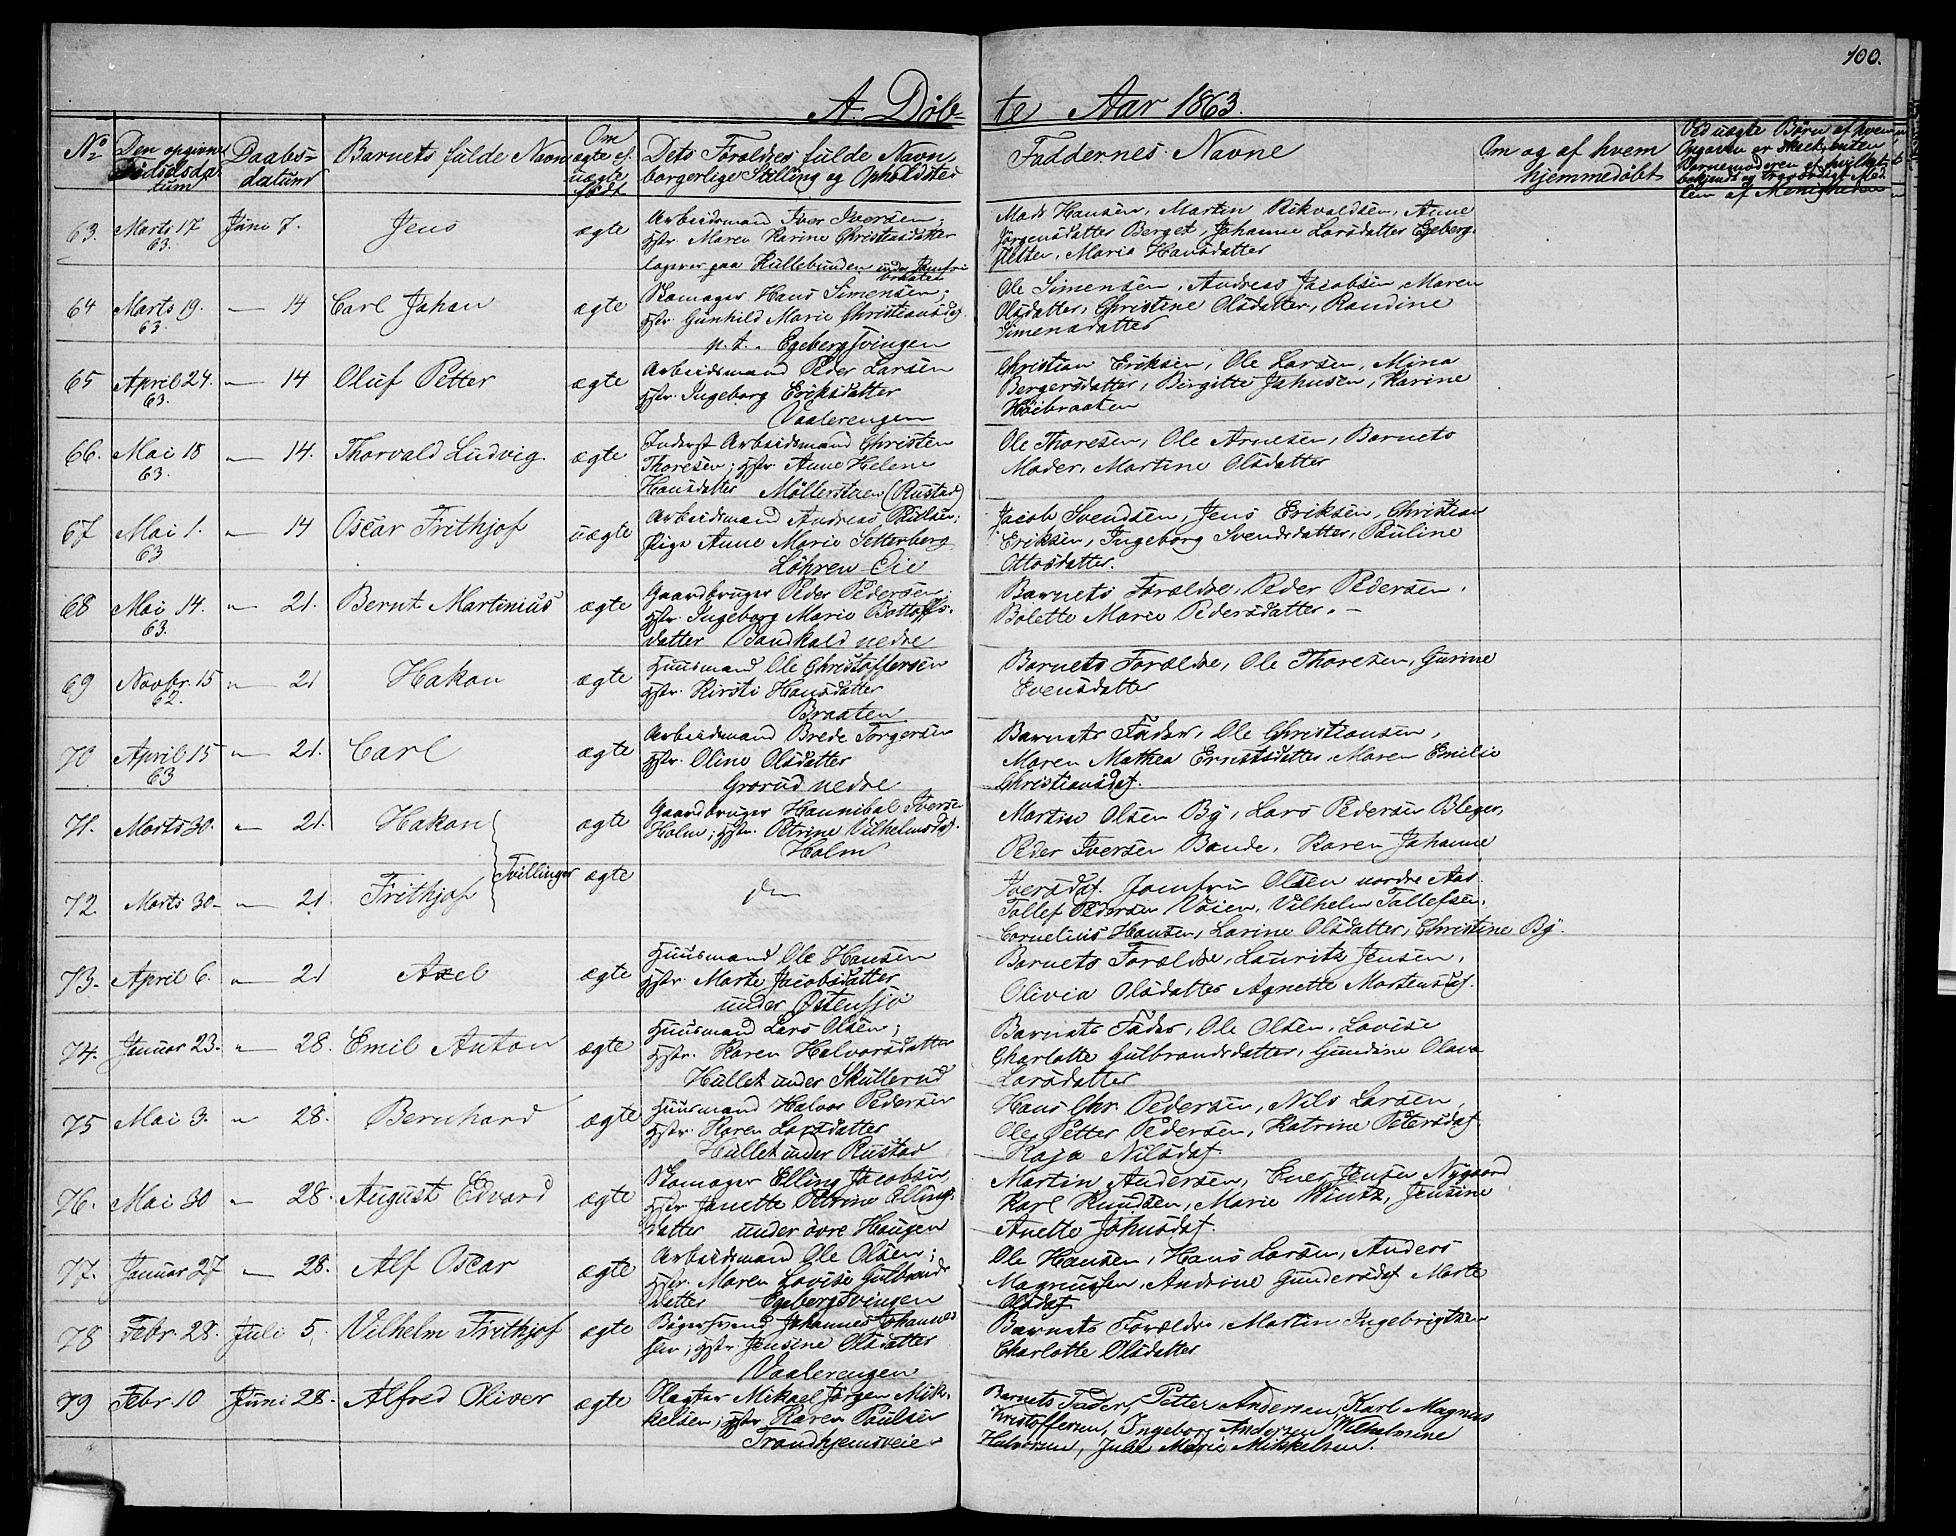 100.
A. Døb- te Aar 1863.
No Den opgivne Fødselsdatum Daabsdatum Barnets fulde Navn Om ægte el. uægte født Dets Forældres fulde Navn, borgerlige Stilling og Opholdsted Faddernes Navne Om og af hvem hjemmedøbt Ved uægte Børn af hvem Opgaven er skeet, enten Barnemoderen el. hvilket bekjendt og troværdigt Medlem af Menigheden
63. Marts 17 63. Juni 7. Jens ægte
Arbeidsmand Iver Iversen;
Hstr. Maren Karine Christiansdatter
logerer paa Kullebunden under
Mads Hansen, Martin Rikvaldsen, Anne
Jørgensdatter Berget, Johanne Larsdatter Egeberg-
sletten, Maria Hansdatter
64 Marts 19. 63. — 14 Carl Johan ægte
Skomager Hans Simensen;
Hstr. Gunhild Marie Christiansdat.
p. t. Egebergsvingen
Ole Simensen, Andreas Jacobsen, Maren
Olsdatter, Christine Olsdatter, Randine
Simensdatter
65 April 24. 63. " — 14 Oluf Petter ægte
Arbeidsmand Peder Larsen
Hstr. Ingeborg Eriksdatter
Vaalerengen
Christian Eriksen, Ole Larsen, Mina
Bergersdatter, Birgitte Johnsen, Karine
Høibraaten
66. Mai 18 63. " — 14. Thorvald Ludvig ægte
Inderst Arbeidsmand Christen
Thoresen; Hstr Anne Helene
Hansdatter Møllerstuen (Rustad)
Ole Thoresen, Ole Arnesen, Barnets
Moder, Martine Olsdatter
67 Mai 1. 63 " — 14 Oscar Frithjof uægte
Arbeidsmand Andreas Paulsen;
Pige Anne Marie Setterberg
Løhren Eie
Jacob Svendsen, Jens Eriksen, Christian
Eriksen, Ingeborg Svendsdatter, Pauline
Ottosdatter.
68 Mai 14. 63. " — 21. Bernt Martinius ægte
Gaardbruger Peder Pedersen;
Hstr. Ingeborg Marie Bottolfs-
datter Bauskald nedre
Barnets Forældre, Peder Pedersen,
Bolette Marie Pedersdatter. —
69 Novbr. 15 62. " — 21 Hakon ægte
Huusmand Ole Christoffersen
Hstr. Kirsti Hansdatter
Braaten
Barnets Forældre, Ole Thoresen, Gurine
Evensdatter
70 April 15 63 " — 21. Carl ægte
Arbeidsmand Brede Torgersen
Hstr. Oline Olsdatter
Grorud nedre
Barnets Fader, Ole Christiansen,
Maren Mathea Ernstsdatter, Maren Emilie
Christiansdat.
71. Marts 30. " — 21. Hakon ægte
Gaardbruger Hannibal Iversen
Holm; Hstr. Petrine Vilhelmsdat.
Holm
Martin Olsen By, Lars Pedersen Bleger,
Peder Iversen Bonde, Karen Johanne
Tvillinger
72. Marts 30 — " — 21 Frithjof ægte
do
Iversdat. Jomfru Olsen nordre Aas.
Tollef Pedersen Vøien, Vilhelm Tollefsen,
Cornelius Hansen, Larine Olsdatter, Christine By.
73. April 6. " — 21 Axel ægte
Huusmand Ole Hansen
Hstr. Marte Jacobsdatter
under Østensjø
Barnets Forældre, Lauritz Jensen,
Olivia Olsdatter Agnette Mortensdat.
74. Januar 23. " — 28. Emil Anton ægte
Huusmand Lars Olsen;
Hstr. Karen Halvorsdatter
Hullet under Skullerud
Barnets Fader, Ole Olsen, Lovise
Charlotte Gulbrandsdatter, Gundine Olava
Larsdatter
75 Mai 3. " 28. Bernhard ægte
Huusmand Halvor Pedersen
Hstr. Karen Larsdatter
Hullet under Rustad
Hans Chr. Pedersen, Nils Larsen,
Ole Petter Pedersen, Katrine Petersdat.
Kaja Nilsdat.
76. Mai 30 " 28. August Edvard ægte
Skomager Elling Jacobsen
Hstr. Janette Petrine Ellings-
datter under øvre Haugen
Martin Andersen, Jensen Nygaard
Karl Knudsen, Marie Wintz, Jensine
Anette Johnsdat.
77. Januar 27 — 28. Alf Oscar ægte
Arbeidsmand Ole Olsen;
Hstr. Maren Lovise Gulbrands-
datter Egebergsvingen
Ole Hansen, Hans Larsen, Anders
Magnussen, Andrine Gundersdat. Marte
Olsdat.
78 Febr. 28. Juli 5. Vilhelm Frithjof ægte
Bøgersvend Johannes Johannes-
sen; Hstr. Jensine Olsdatter
Vaalerengen
Barnets Forældre, Martin Ingebrigtsen
Charlotte Olsdatter
79 Febr. 10 Juni 28. Alfred Oliver ægte
Slagter Mikael Jørgen Mik-
kelsen, Hstr. Karen Paulsen
Trondhjemsveien
Barnets Fader, Petter Andersen, Karl Magnus
Kristoffersen, Ingeborg Andersen Wilhelmine
Halvorsen, Julie Marie Mikkelsen.